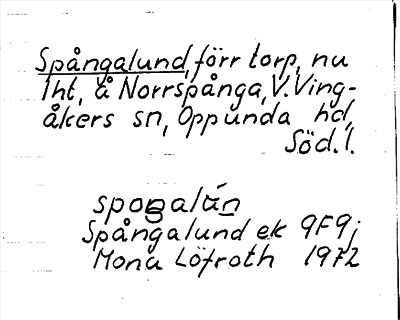 Spångalund, förr torp, nu
lht, å Norrspånga, V. Ving-
åkers sn, Oppunda hd,
Söd. l.
Spångalund ek 9F9j
Mona Löfroth 1972